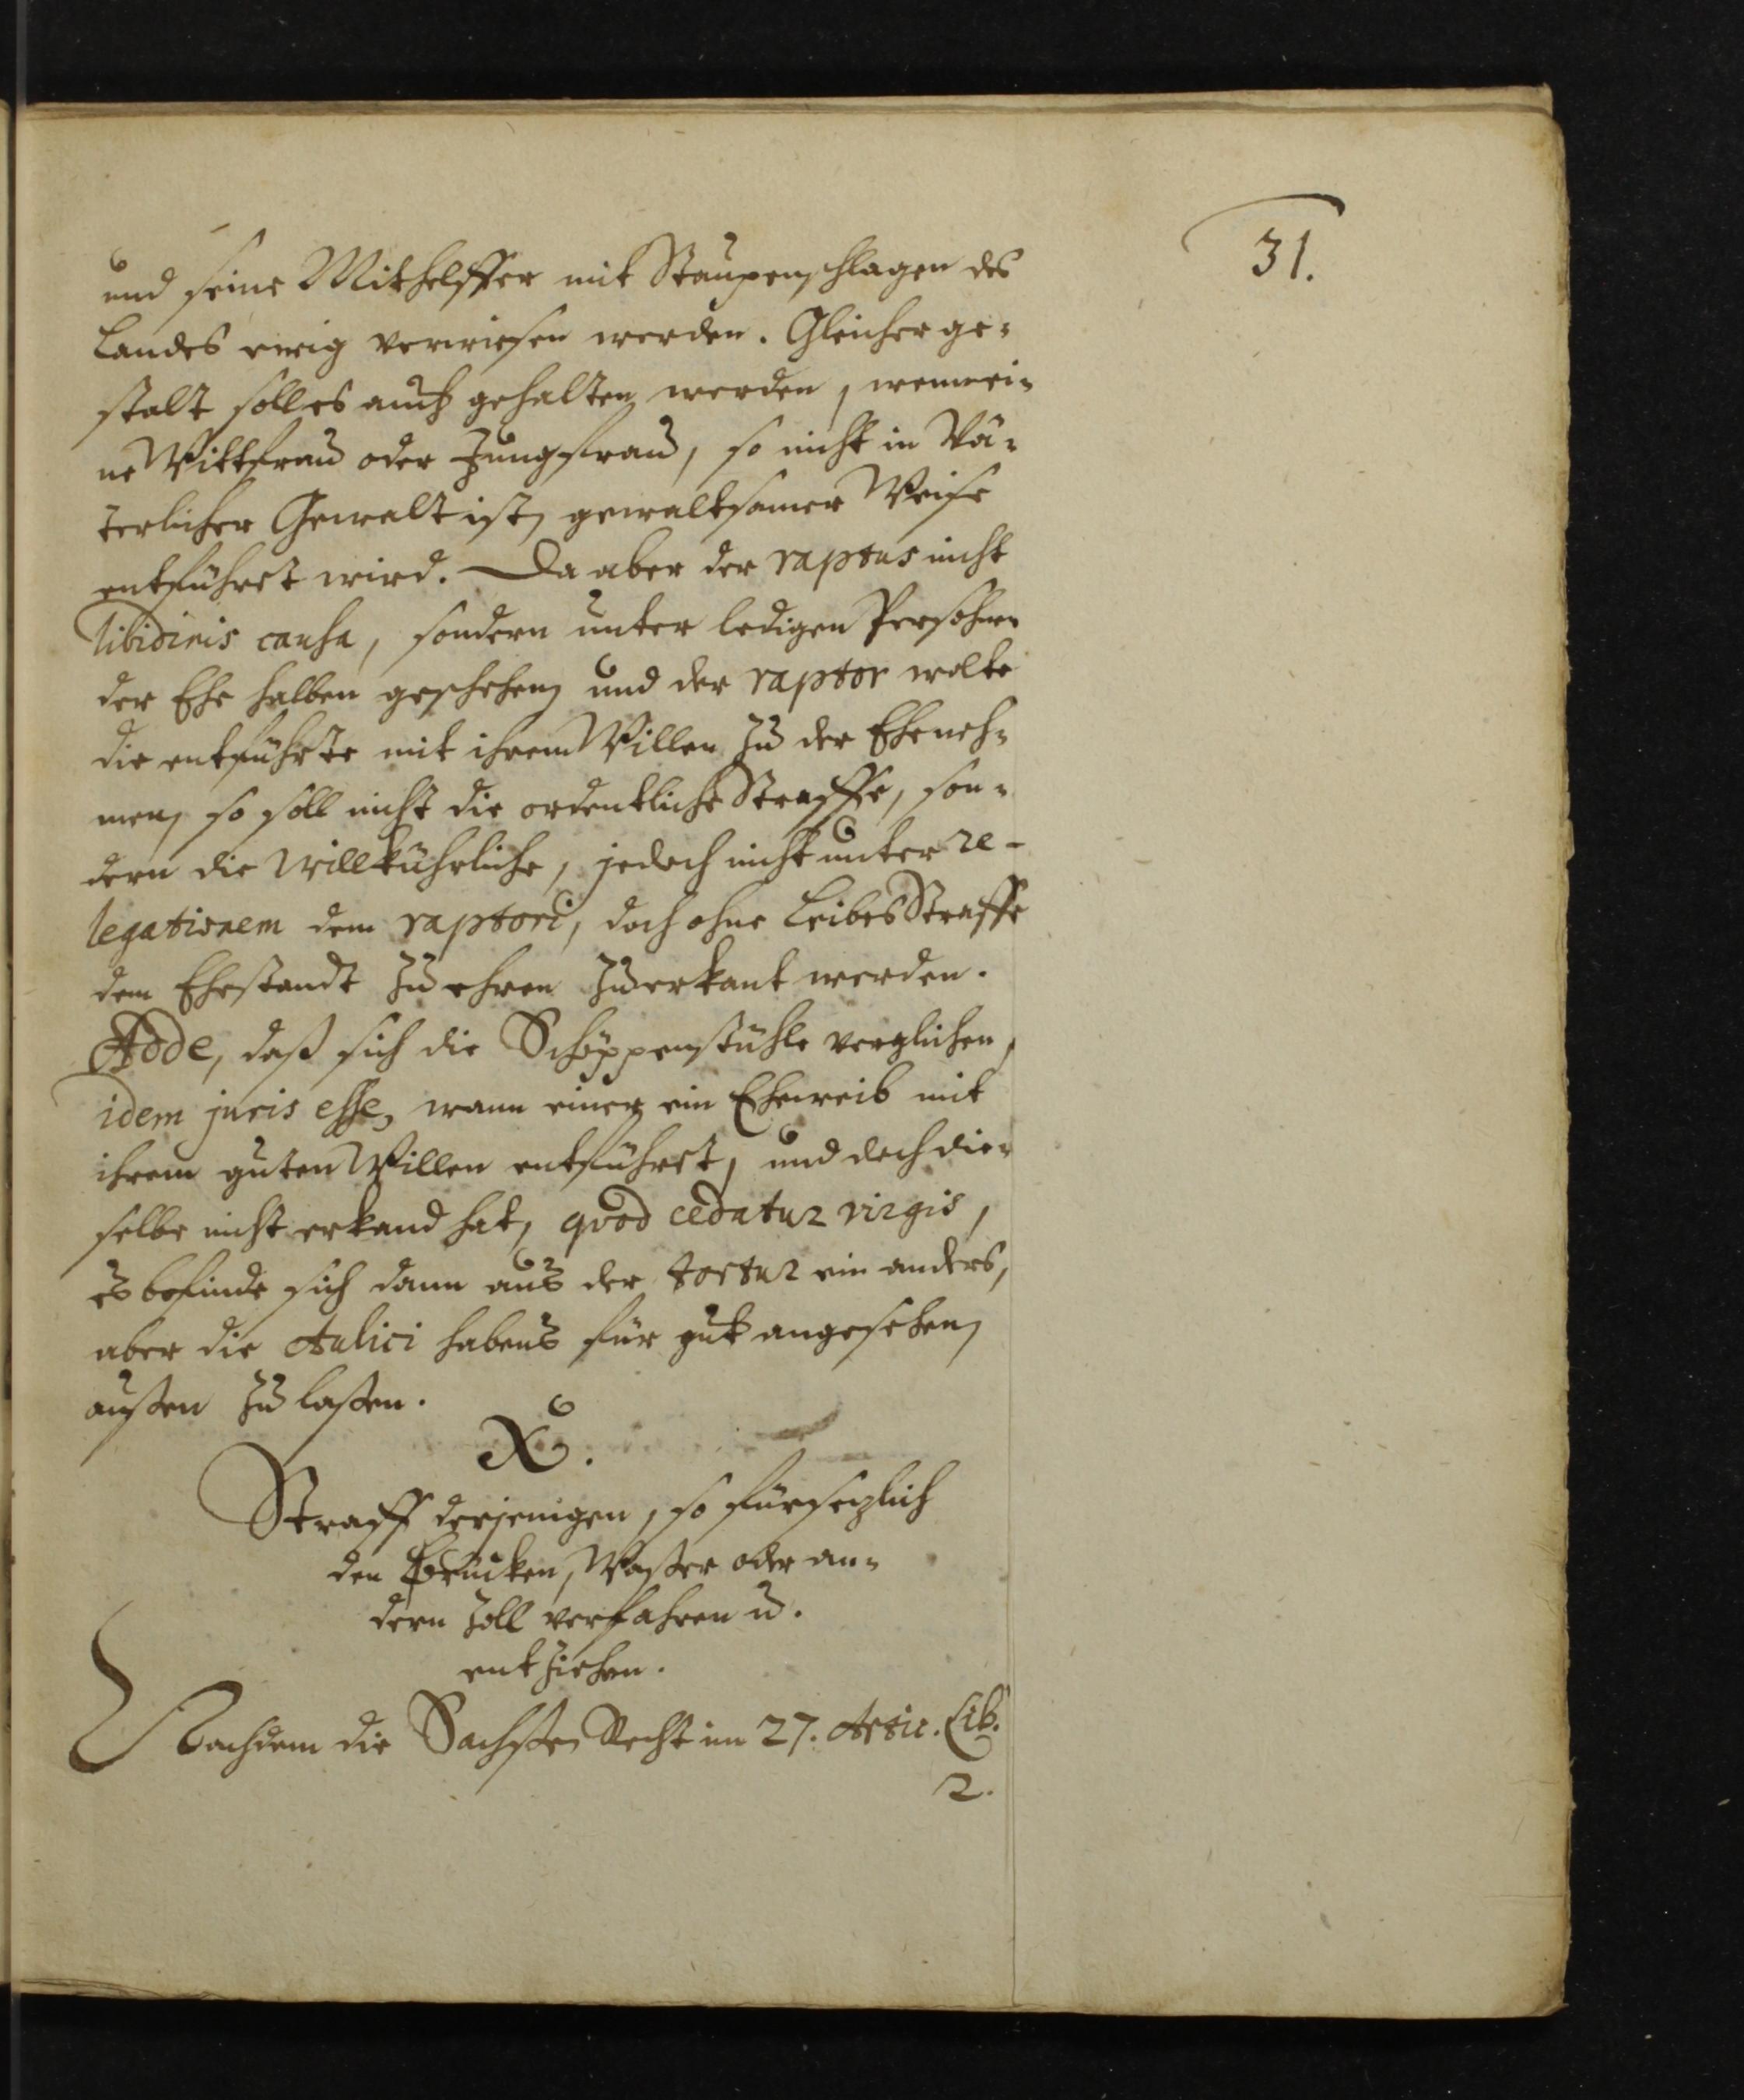 31.
und seine Mithelffer mit Staupenschlagen des
Landes ewig verwiesen werden. Gleicher ge-
stalt soll es auch gehalten werden, wenn ei-
ne Wittfrau oder Jungfrau, so nicht in Vä-
terlicher Gewalt ist, gewaltsamer Weise
entführet wird. Da aber der raptus nicht
libidinis causa, sondern unter ledigen Persohnen
der Ehe halben geschehen, und der raptor wolte
die entführte mit ihrem Willen zu der Ehe neh-
men, so soll nicht die ordentliche Straffe, son-
dern die willkührliche, jedoch nicht unter re-
legationem dem raptori, doch ohne Leibes Straffe
dem Ehestandt zu ehren zuerkant werden.
Adde, daß sich die Schöppenstühle verglichen,
idem juris esse, wann einer ein Eheweib mit
ihrem guten Willen entführet, und doch die-
selbe nicht erkand hat, quod cedatur virgis,
es befinde sich dann aus der tortur ein anders,
aber die Aulici habens für gut angesehen,
außen zu laßen.
X.
Straff derjenigen, so fürsezlich
den Brücken, Waßer oder an-
dern Zoll verfahren u.
entziehen.
Nachdem die Sachßen Recht im 27. Artic. Lib.
2.